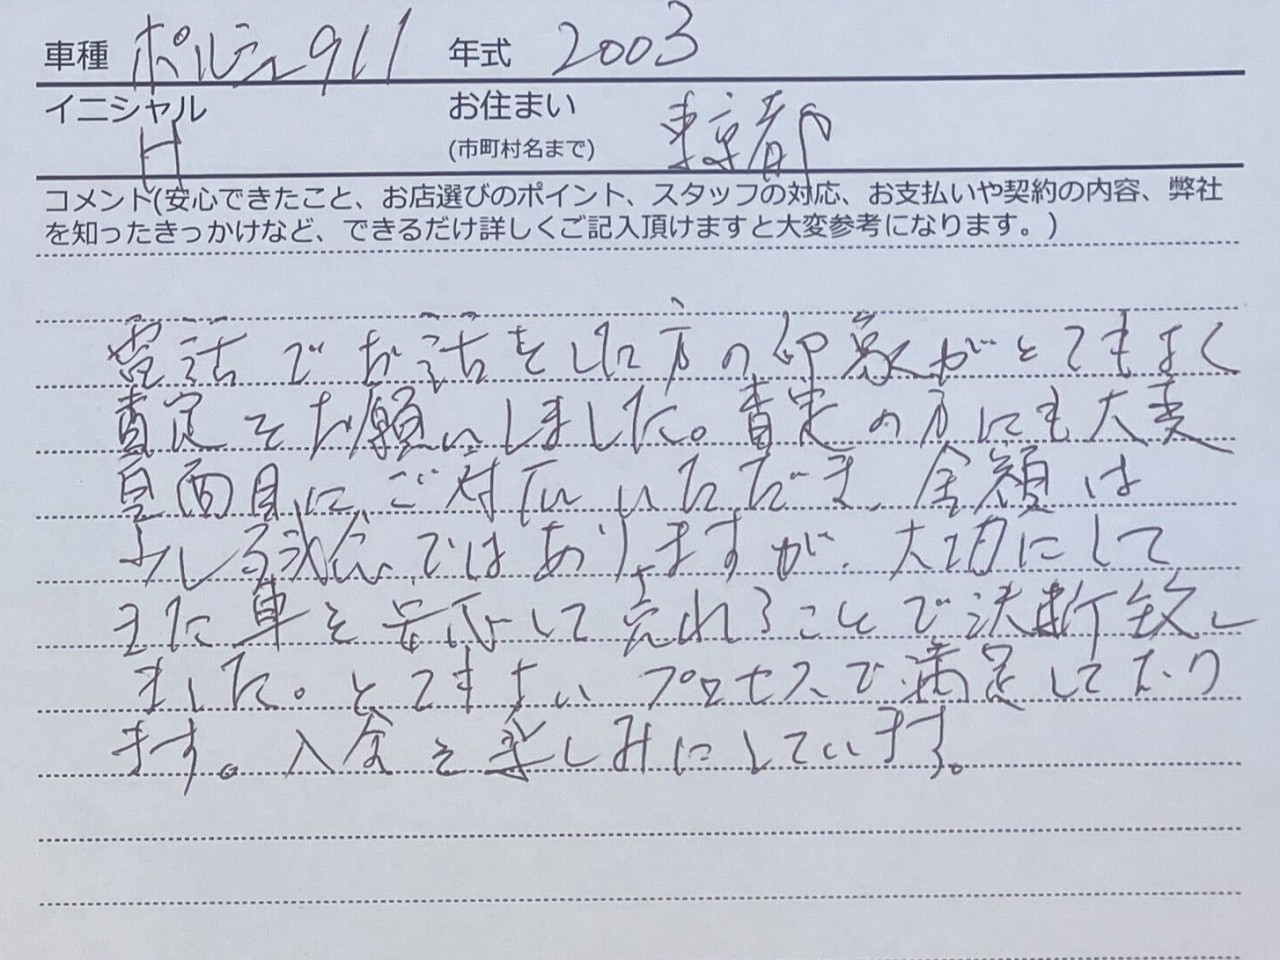 車種 ポルシェ911 年式 2003
イニシャル お住まい
H (市町村名まで) 東京都
コメント(安心できたこと、お店選びのポイント、スタッフの対応、お支払いや契約の内容、弊社
を知ったきっかけなど、できるだけ詳しくご記入頂けますと大変参考になります。)
電話でお話をした方の印象がとてもよく
査定をお願いしました。査定の方にも大変
真面目にご対応いただき、金額は
少し残念ではありますが、大切にして
きた車を安心して売れることで決断致し
ました。とてもよいプロセスで満足しており
ます。入金を楽しみにしています。